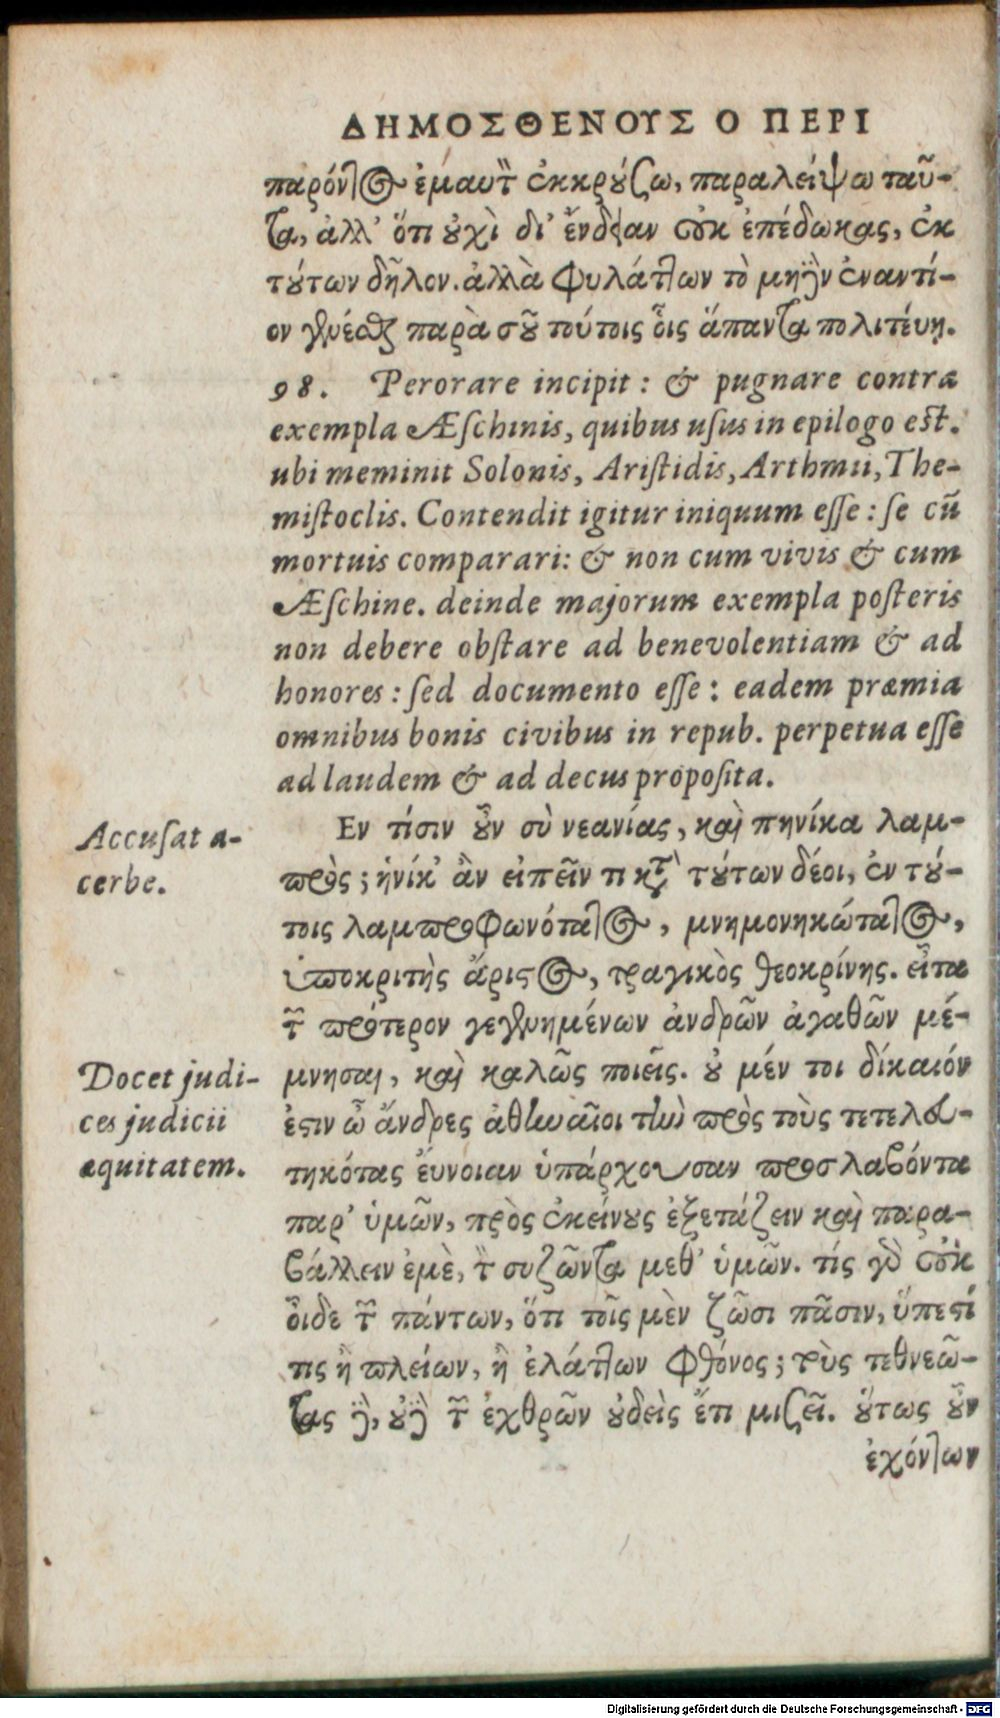 ΔΗΜΟΣΘΕΝΟΥΣ Ο ΠΕΡΙ
παρόντος ἐμαυτὸν ἐκκρούσω, παραλείψω ταῦ-
τα, ἀλλ' ὅτι οὐχὶ δι' ἔνδειαν οὐκ ἐπέδωκας, ἐκ
τούτων δῆλον. ἀλλὰ φυλάττων τὸ μηδὲν ἐναντί-
ον γενέσθαι παρὰ σοῦ τούτοις οἷς ἅπαντα πολιτεύῃ.
98. Perorare incipit: & pugnare contra
exempla Æſchinis, quibus uſus in epilogo est.
ubi meminit Solonis, Ariſtidis, Arthmii, The-
miſtoclis. Contendit igitur iniquum eſſe: ſe cū
mortuis comparari: & non cum vivis & cum
Æſchine. deinde majorum exempla poſteris
non debere obſtare ad benevolentiam & ad
honores: ſed documento eſſe: eadem præmia
omnibus bonis civibus in repub. perpetua eſſe
ad laudem & ad decus propoſita.
Accuſat a-
cerbe.
Εν τίσιν οὖν σὺ νεανίας, καὶ πηνίκα λαμ-
πρὸς; ἡνίκ' ἂν εἰπεῖν τι κατὰ τούτων δέοι, ἐν τού-
τοις λαμπροφωνότατος, μνημονικώτατος,
ὑποκριτὴς ἄριστος, τραγικὸς θεοκρίνης. εἶτα
τῶν πρότερον γεγενημένων ἀνδρῶν ἀγαθῶν μέ-
Docet judi-
ces judicii
æquitatem.
μνησαι, καὶ καλῶς ποιεῖς. οὐ μέν τοι δίκαιόν
ἐστιν ὦ ἄνδρες ἀθηναῖοι τὴν πρὸς τοὺς τετελευ-
τηκότας ἔυνοιαν ὑπάρχουσαν προσλαβόντα
παρ' ὑμῶν, πρὸς ἐκείνους ἐξετάζειν καὶ παρα-
βάλλειν ἐμὲ, τὸν συζῶντα μεθ' ὑμῶν. τίς γὰρ οὐκ
οἶδε τῶν πάντων, ὅτι τοῖς μὲν ζῶσι πᾶσιν, ὕπεστί
τις ἢ πλείων, ἢ ἐλάττων φθόνος; τοὺς τεθνεῶ-
τας δὲ, οὐδὲ τῶν ἐχθρῶν οὐδεὶς ἔτι μισεῖ. οὕτως οὖν
ἐχόντων
Digitalisierung gefördert durch die Deutsche Forschungsgemeinschaft - DFG